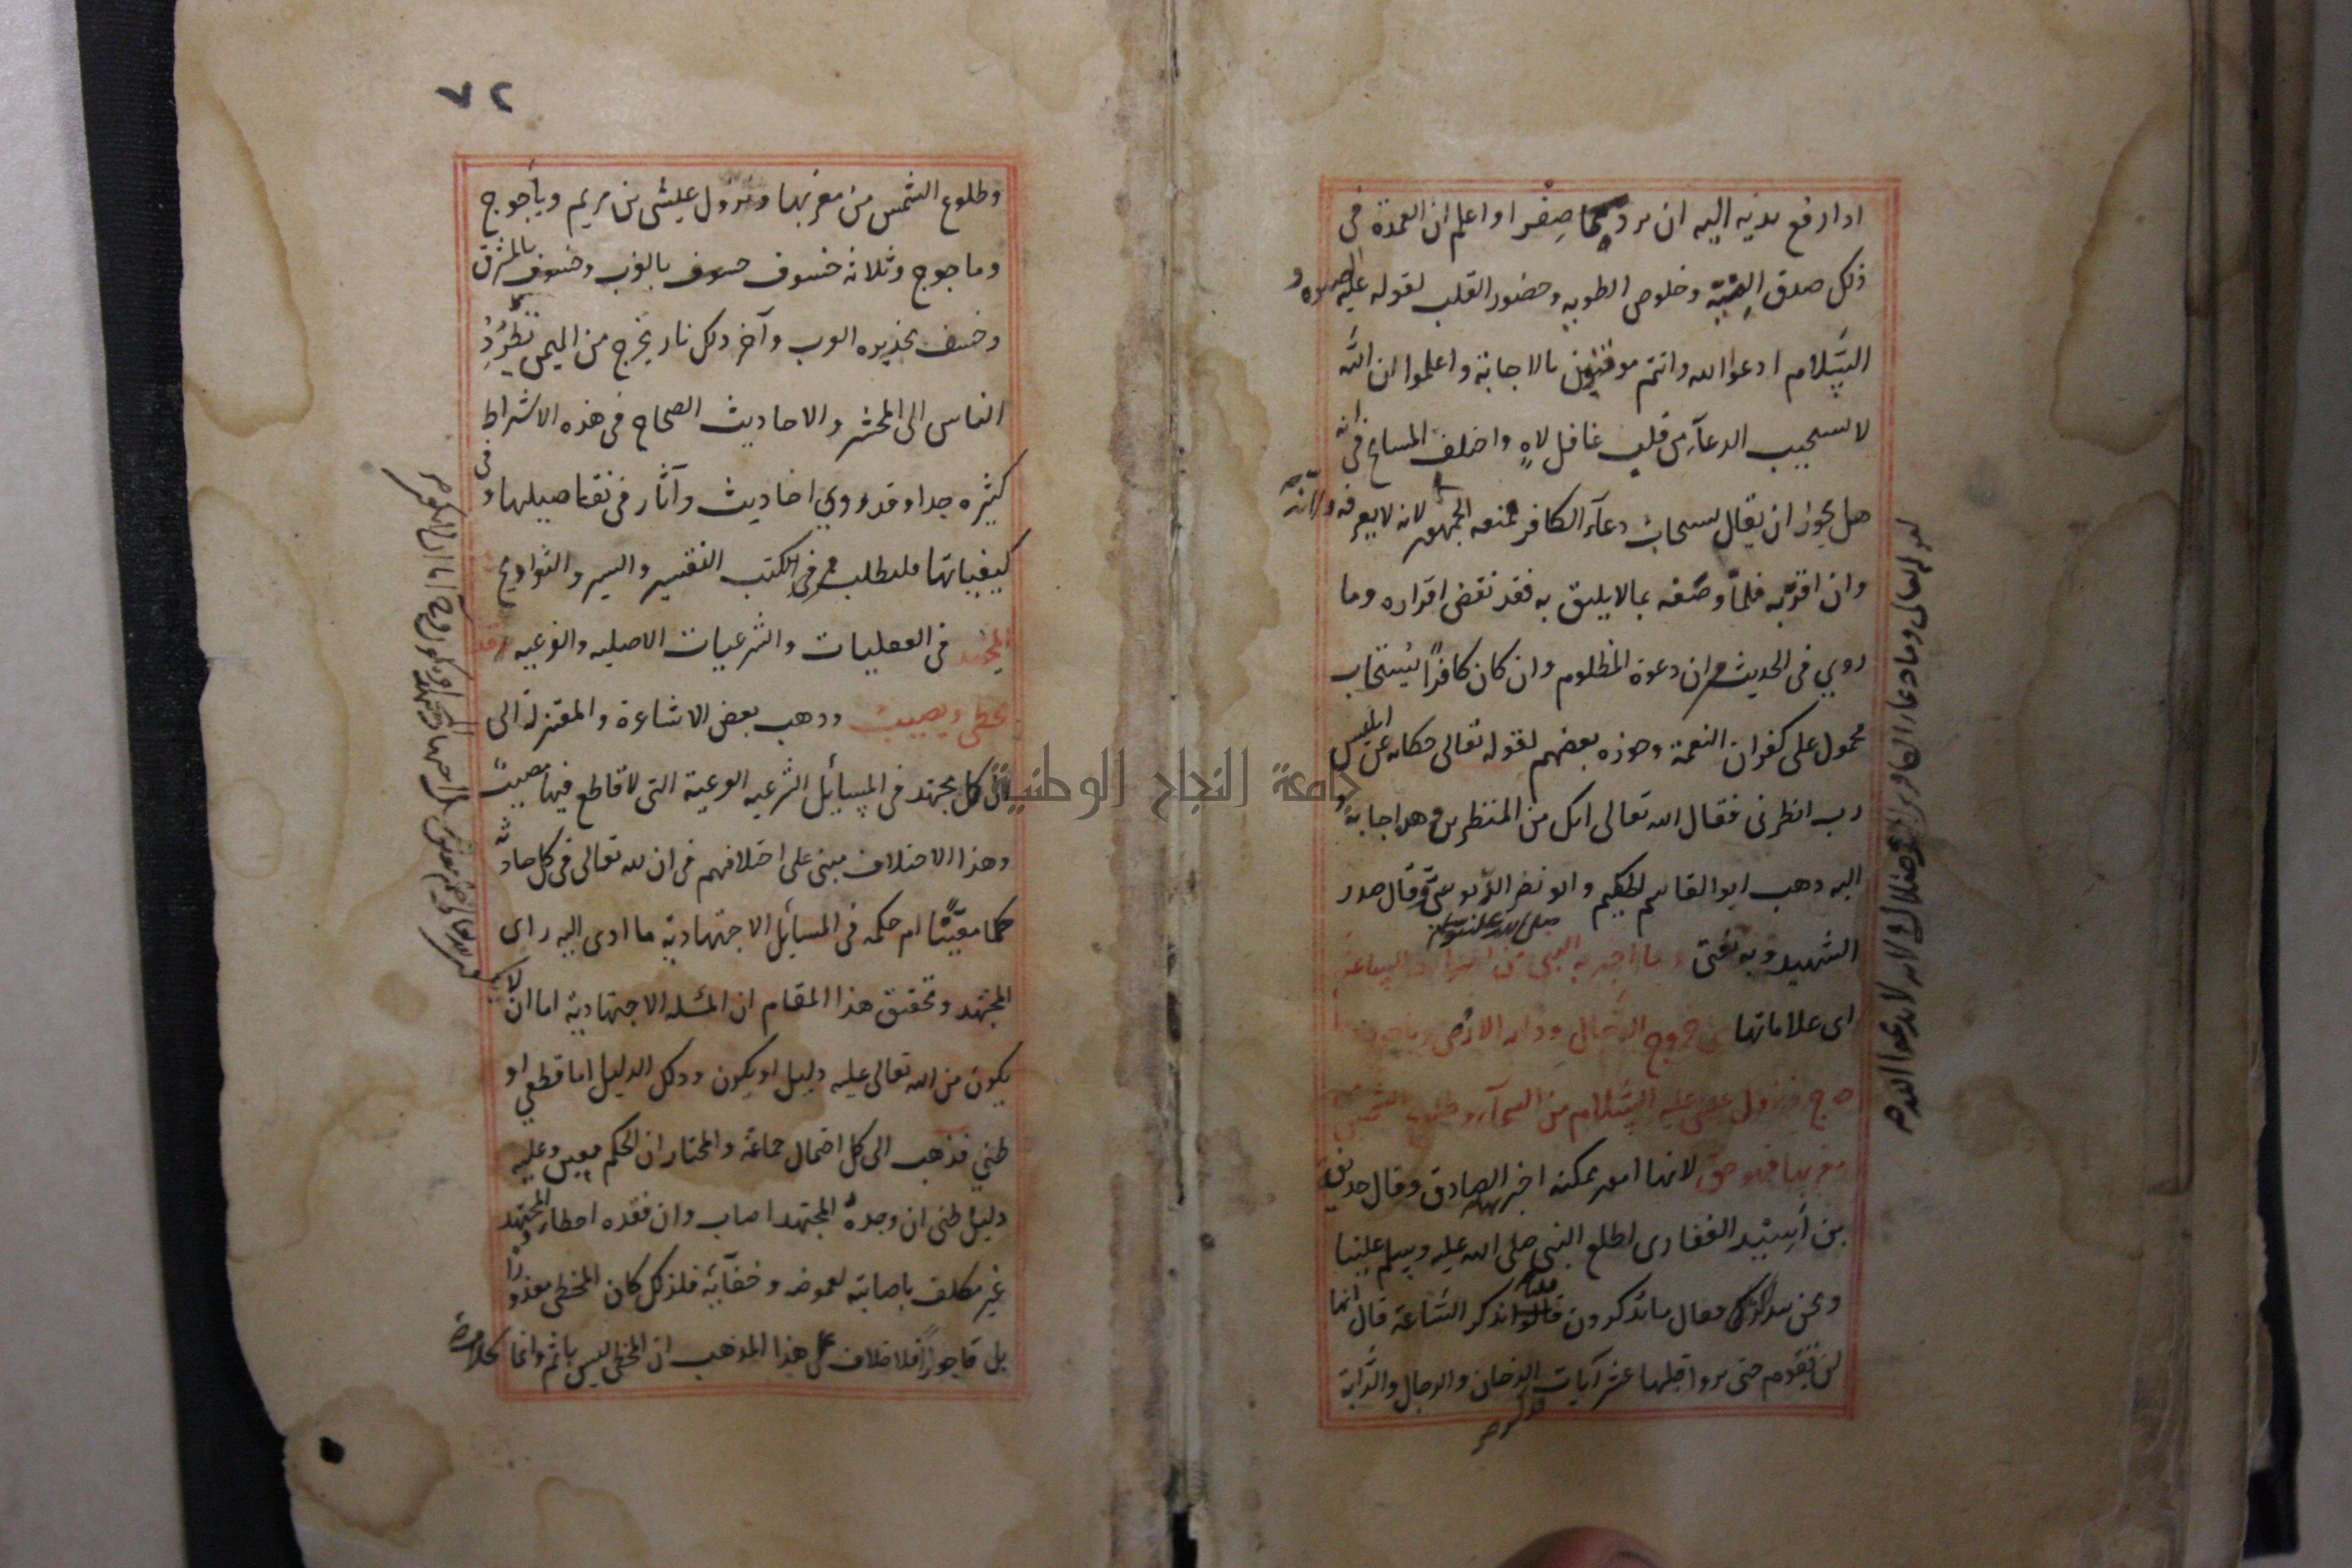 اذا رفع يديه اليه ان يردهما صِفْرا واعلم ان العمدة فى
ذلك صدق النيّة وخلوص الطويه وحضور القلب لقوله عليه الصلوه و
السَّلام ادعوا الله وانتم موقنون بالاجابة واعلموا ان الله
لا يستجيب الدعآء من قلب غافل لاهٍ واختلف المشايخ فى انه
هل يجوز ان يقال يستجاب دعآء الكافر فمنعه الجمهور لانه لا يعرفه
وان اقرّ به فلمّا وصَفه بما لا يليق به فقد نقض اقراره وما
روي فى الحديث من ان دعوة المظلوم وان كان كافرًا يُستجاب
محمول على كفران النعمة وجوزه بعضهم لقوله تعالى حكاية عن ابليس
رب انظرنى فقال الله تعالى انك من المنظرين هذا اجابة و
اليه ذهب ابو القاسم الحكيم وابو نصر الدّبوسىّ وقال صدر
الشهيد وبه يفتى وما اخبر به النبى صلى الله عليه وسلم من اشراط الساعة
اى علاماتها من خروج الدّجال ودابه الارض وياجوج وما
جوج ونزول عيسى عليه السَّلام من السمآء وطلوع الشمس من
مغربها فهو حق لانها امور ممكنه اخبر بها الصادق وقال حذيفة
بن اَسِيْد الغفارى اطلع النبى صلى الله عليه وسلم علينا
ونحن نتذاكر فقال ما تذكرون قلنا نذكر السَّاعة قال انها
لن تَقوم حتى تروا قبلها عشر آيات فذكر الدخان والدجال والدَّابة
٧٢
وطلوع الشمس من مغربها ونزول عيسى بن مريم وياَجوج
وماجوج وثلاثه خسوف خسوف بالمغرب وخسوف بالمشرق
وخسف بجزيره العرب وآخر ذلك نار يخرج من اليمن تَطْرُدُ
الناس الى المحشر والاحاديث الصحاح فى هذه الاشراط
كثيره جدا وقد روي احاديث وآثار فى تفاصيلها و
كيفياتها فليطلب من كتب التفسير والسير والتواريخ
المجتهد فى العقليات والشرعيات الاصليه والفرعيه قد
يخطى ويصيب وذهب بعض الاشاعرة والمعتزلة الى
ان كل مجتهد فى المسآئل الشرعيه الفرعية التى لا قاطع فيها مصيب
وهذا الاختلاف مبنى على اختلافهم فى ان لله تعالى فى كل حادثة
حكما معيّنًا ام حكمه فى المسايل الاجتهادية ما ادى اليه راى
المجتهد وتحقيق هذا المقام ان المسئله الاجتهادية اما ان لا
يكون من الله تعالى عليه دليل او يكون وذلك الدليل اما قطعي او
ظني فذهب الى كل احتمال جماعَة والمختار ان الحكم معين وعليه
دليل ظنى ان وجده المجتهد اصاب وان فقده اخطا والمجتهد
غير مكلف باصابته لغموضه وخفآئه فلذلك كان المخطى معذورا
بل ماجورًا فلا خلاف على هذا المذهب ان المخطى ليس باثم وانما
جامعة النجاح الوطنية